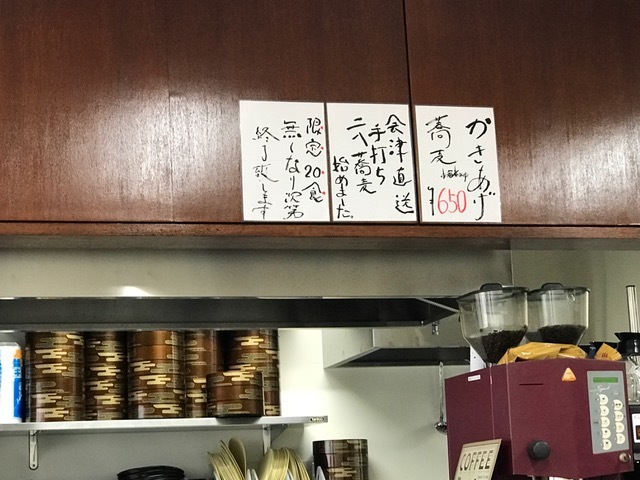 かきあげ
蕎麦
¥650
会津直送
手打ち
二八蕎麦
始めました。
限定20食
無くなり次第
終了致します
COFFEE